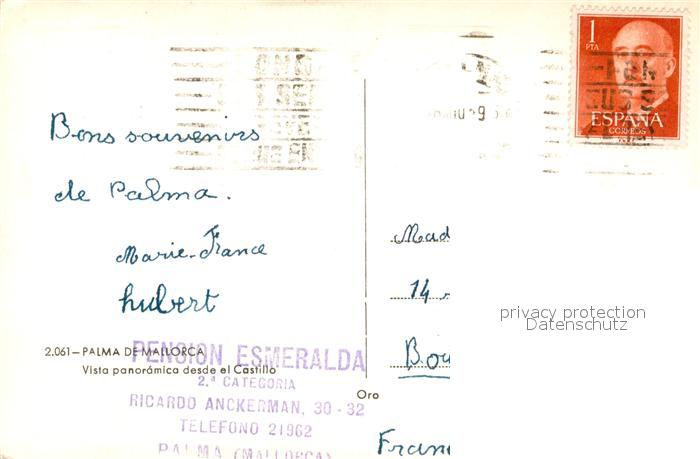 1
PTA
ESPAÑA
CORREOS
Bons souvenirs
de Palma.
Marie-France
hubert
2.061 — PALMA DE MALLORCA
Vista panorámica desde el Castillo
PENSION ESMERALDA
2.ª CATEGORIA
RICARDO ANCKERMAN, 30 - 32
TELEFONO 21962
PALMA (MALLORCA)
Oro
Mad
14
Bou
Fran
privacy protection
Datenschutz